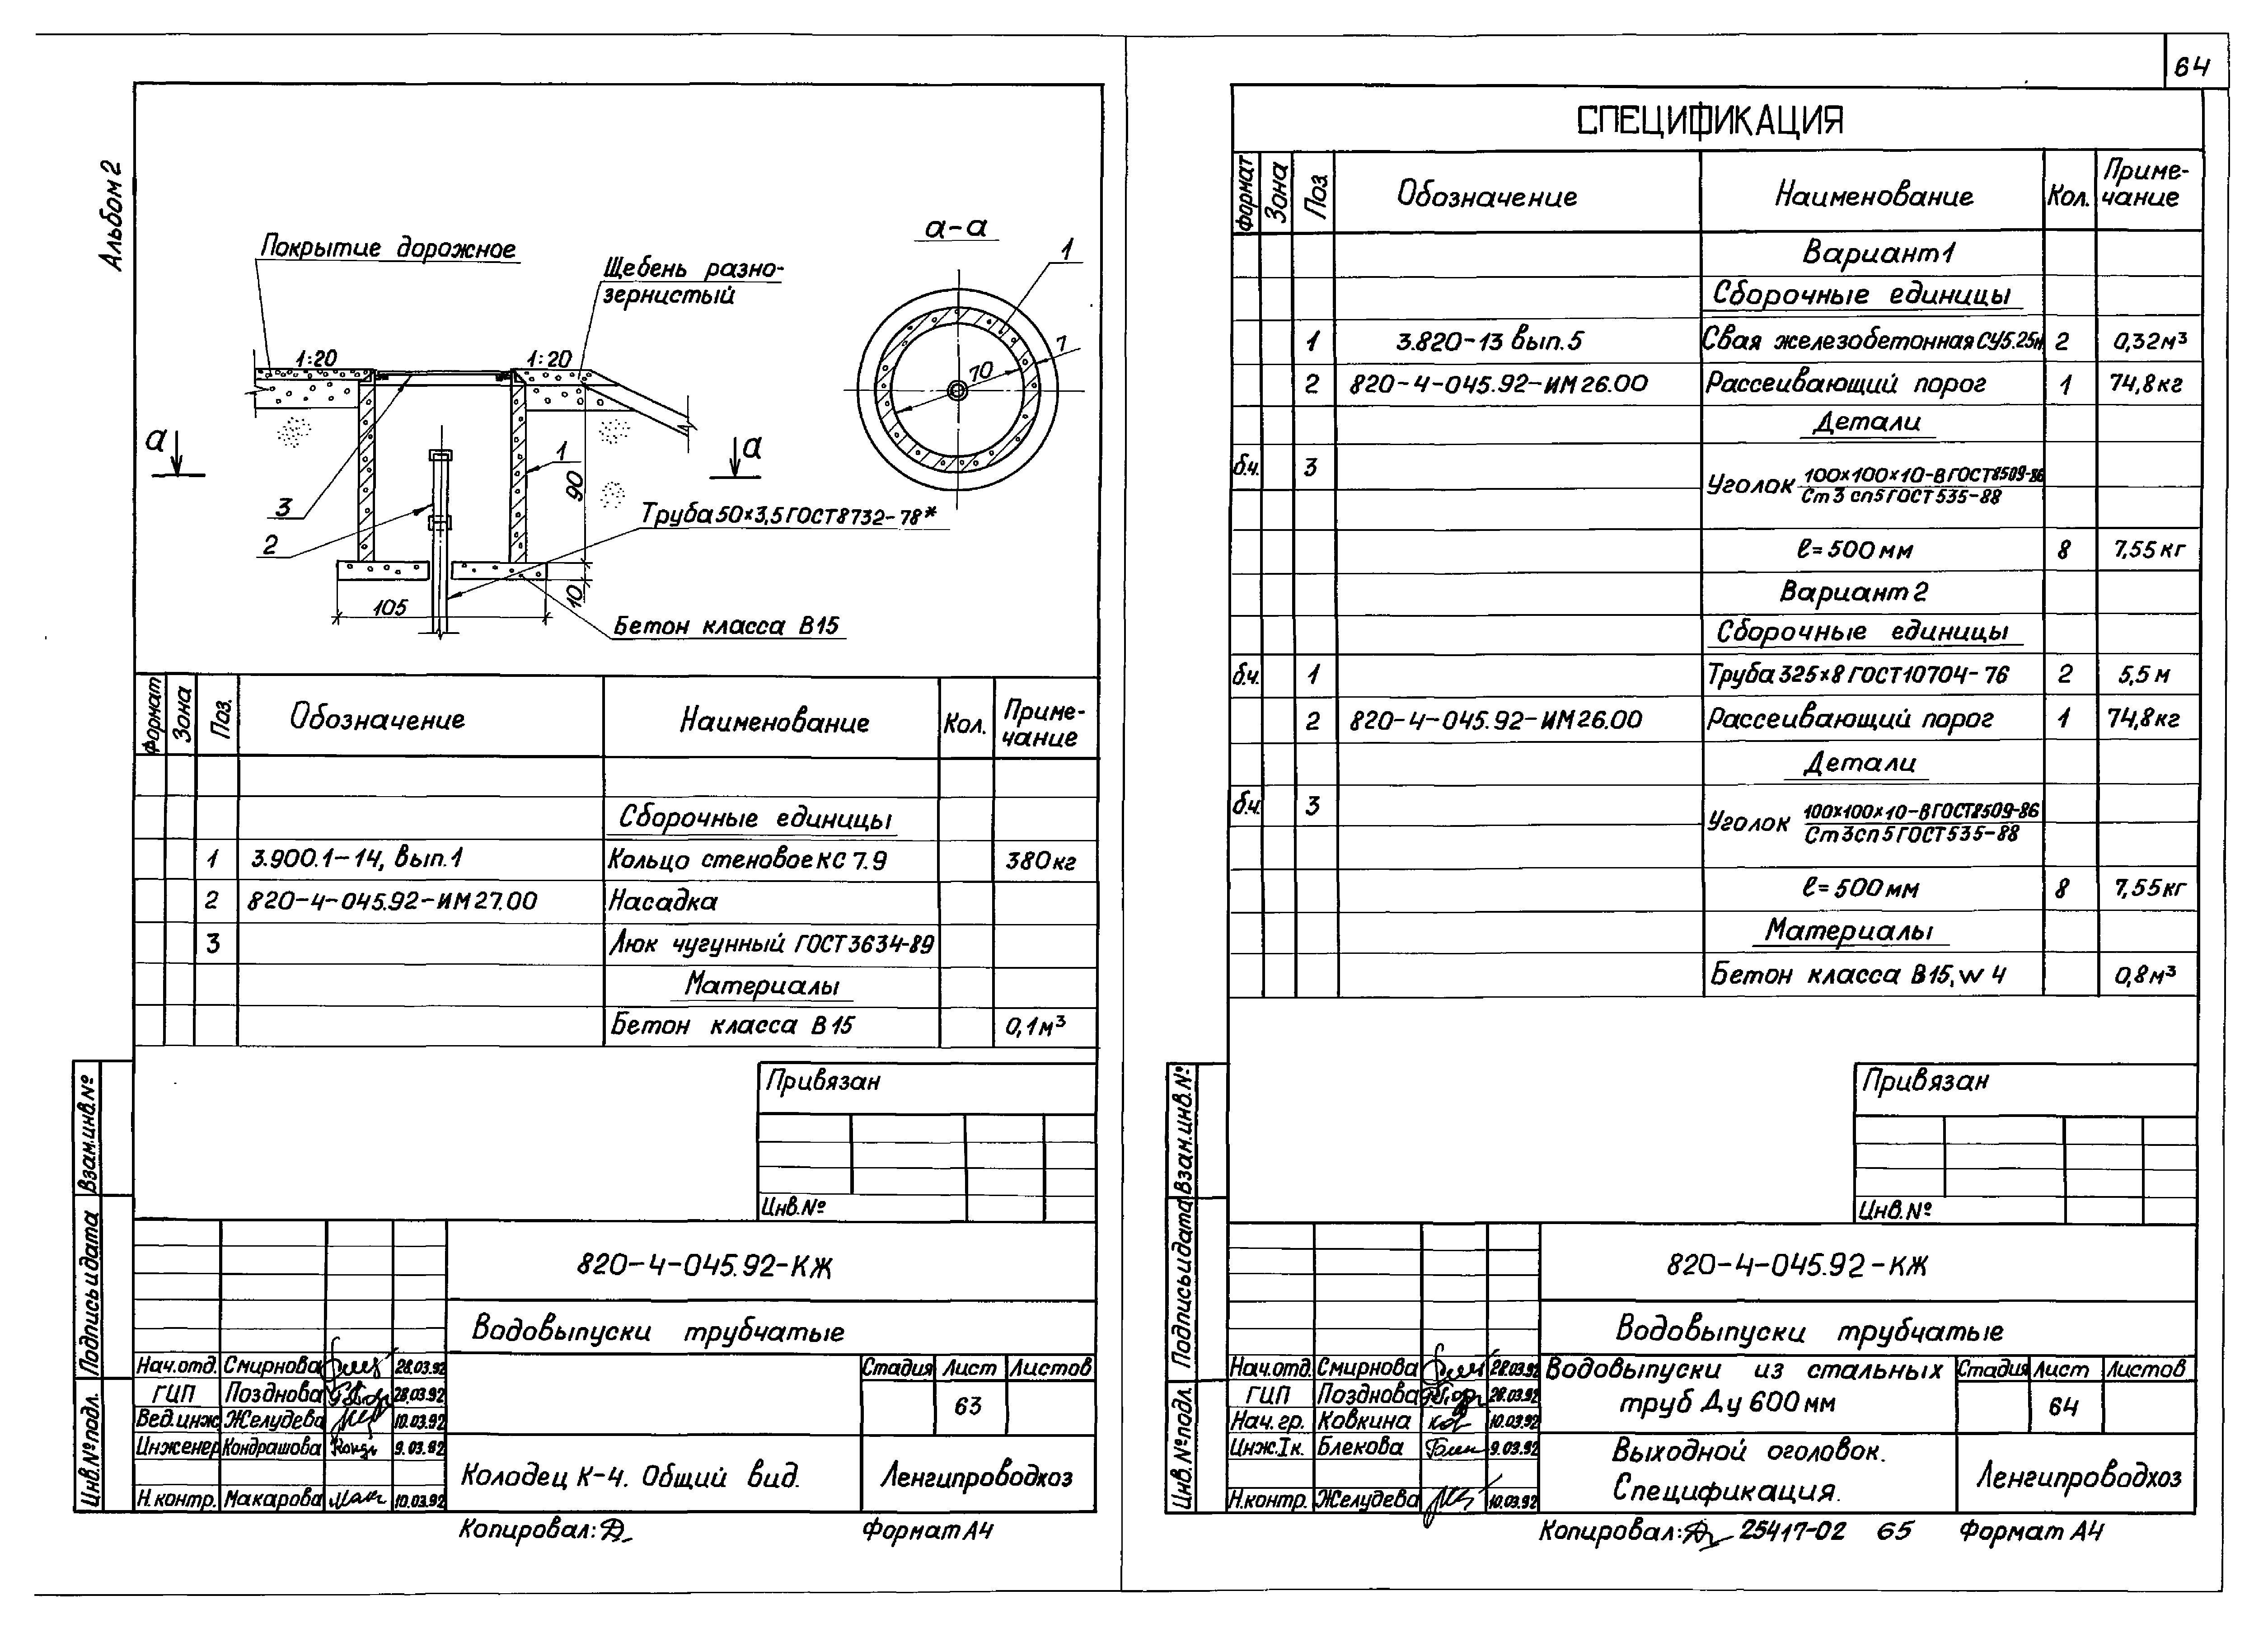 64
Альбом 2
Покрытие дорожное
Щебень разно-
зернистый
1:20
1:20
а
а
3
2
1
90
10
105
Труба 50×3,5 ГОСТ 8732-78*
Бетон класса В15
а-а
1
70
7
Формат Зона Поз. Обозначение Наименование Кол. Приме-
чание
Сборочные единицы
1 3.900.1-14, вып.1 Кольцо стеновое КС 7.9 380кг
2 820-4-045.92-ИМ27.00 Насадка
3 Люк чугунный ГОСТ 3634-89
Материалы
Бетон класса В15 0,1м³
Привязан
Инв.№
Взам.инв.№
Подпись и дата
Инв.№подл.
820-4-045.92-КЖ
Водовыпуски трубчатые
Нач.отд. Смирнова 28.03.92
ГИП Позднова 28.03.92
Вед.инж. Желудева 10.03.92
Инженер Кондрашова 9.03.92
Н.контр. Макарова 10.03.92
Стадия Лист Листов
63
Колодец К-4. Общий вид.
Ленгипроводхоз
Копировал:
Формат А4
СПЕЦИФИКАЦИЯ
Формат Зона Поз. Обозначение Наименование Кол. Приме-
чание
Вариант 1
Сборочные единицы
1 3.820-13 вып.5 Свая железобетонная СУ5.25н 2 0,32м³
2 820-4-045.92-ИМ26.00 Рассеивающий порог 1 74,8кг
Детали
б.ч. 3 Уголок 100×100×10-В ГОСТ 8509-86
Ст3 сп5 ГОСТ 535-88
ℓ=500мм 8 7,55кг
Вариант 2
Сборочные единицы
б.ч. 1 Труба 325×8 ГОСТ 10704-76 2 5,5м
2 820-4-045.92-ИМ26.00 Рассеивающий порог 1 74,8кг
Детали
б.ч. 3 Уголок 100×100×10-В ГОСТ 8509-86
Ст3сп5 ГОСТ 535-88
ℓ=500мм 8 7,55кг
Материалы
Бетон класса В15, w4 0,8м³
Привязан
Инв.№
Взам.инв.№
Подпись и дата
Инв.№подл.
820-4-045.92-КЖ
Водовыпуски трубчатые
Нач.отд. Смирнова 28.03.92
ГИП Позднова 28.03.92
Нач.гр. Ковкина 10.03.92
Инж.Iк. Блекова 9.03.92
Н.контр. Желудева 10.03.92
Водовыпуски из стальных
труб Ду 600мм
Стадия Лист Листов
64
Выходной оголовок.
Спецификация.
Ленгипроводхоз
Копировал: 25417-02 65 Формат А4